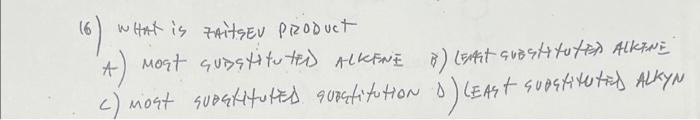 16) WHAT is ZAITSEV PRODUCT
A) MOST SUBSTITUTED ALKENE B) LEAST SUBSTITUTED ALKENE
C) MOST SUBSTITUTED SUBSTITUTION D) LEAST SUBSTITUTED ALKYN